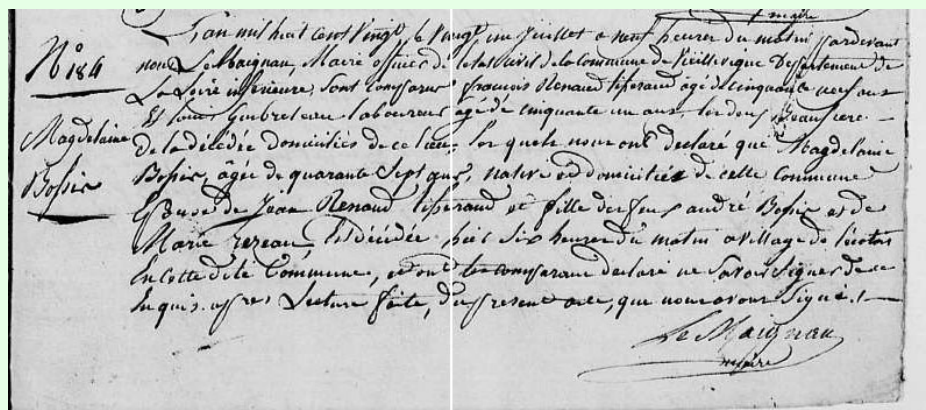 maire
N° 184
Magdelaine
Bossis
L'an mil huit cent vingt le vingt un Juillet a neuf heures du matin pardevant
nous Le Maignan, Maire officier de l'etat civil de la commune de Vieillevigne Departement de
La Loire inferieure, sont comparus francois Renaud tisserand agé de cinquante neuf ans
Et Louis Gubreteau laboureur agé de cinquante un ans, tous deux Beaufrere
de la décédée domiciliés de ce lieu, les quels nous ont declaré que Magdelaine
Bossis, âgée de quarante sept ans, native et domiciliée de cette Commune
Epouse de Jean Renaud tisserand et fille des feus andré Bossis et de
Marie rezeau, est décédée hier six heures du matin a village de
En cette dite Commune, et ont les comparans declaré ne savoir signer de ce
Enquis. apres Lecture faite, du present acte, que nous avons signé.
Le Maignan
maire